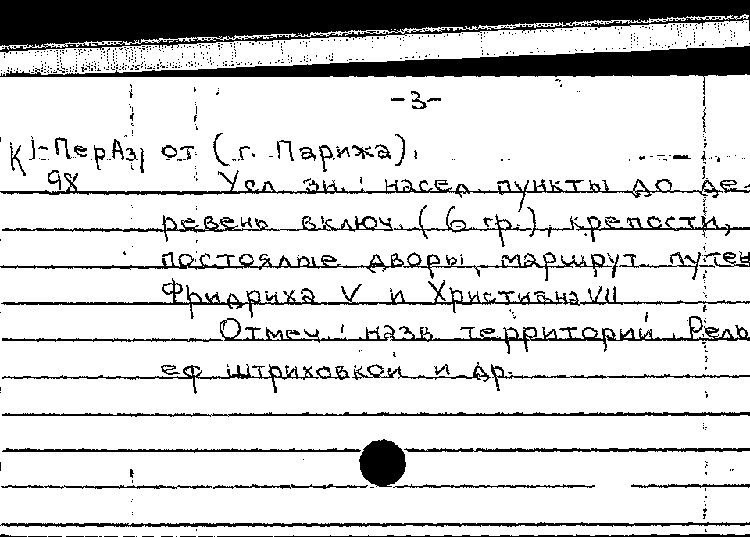 -3-
К)-ПерАз/ от (г. Парижа).
98 Усл. зн.: насел. пункты до де-
ревень включ. (6 гр.), крепости,
постоялые дворы, маршрут путеш
Фридриха V и Христиана VII
Отмеч.: назв территорий. Рель
еф штриховкой и др.